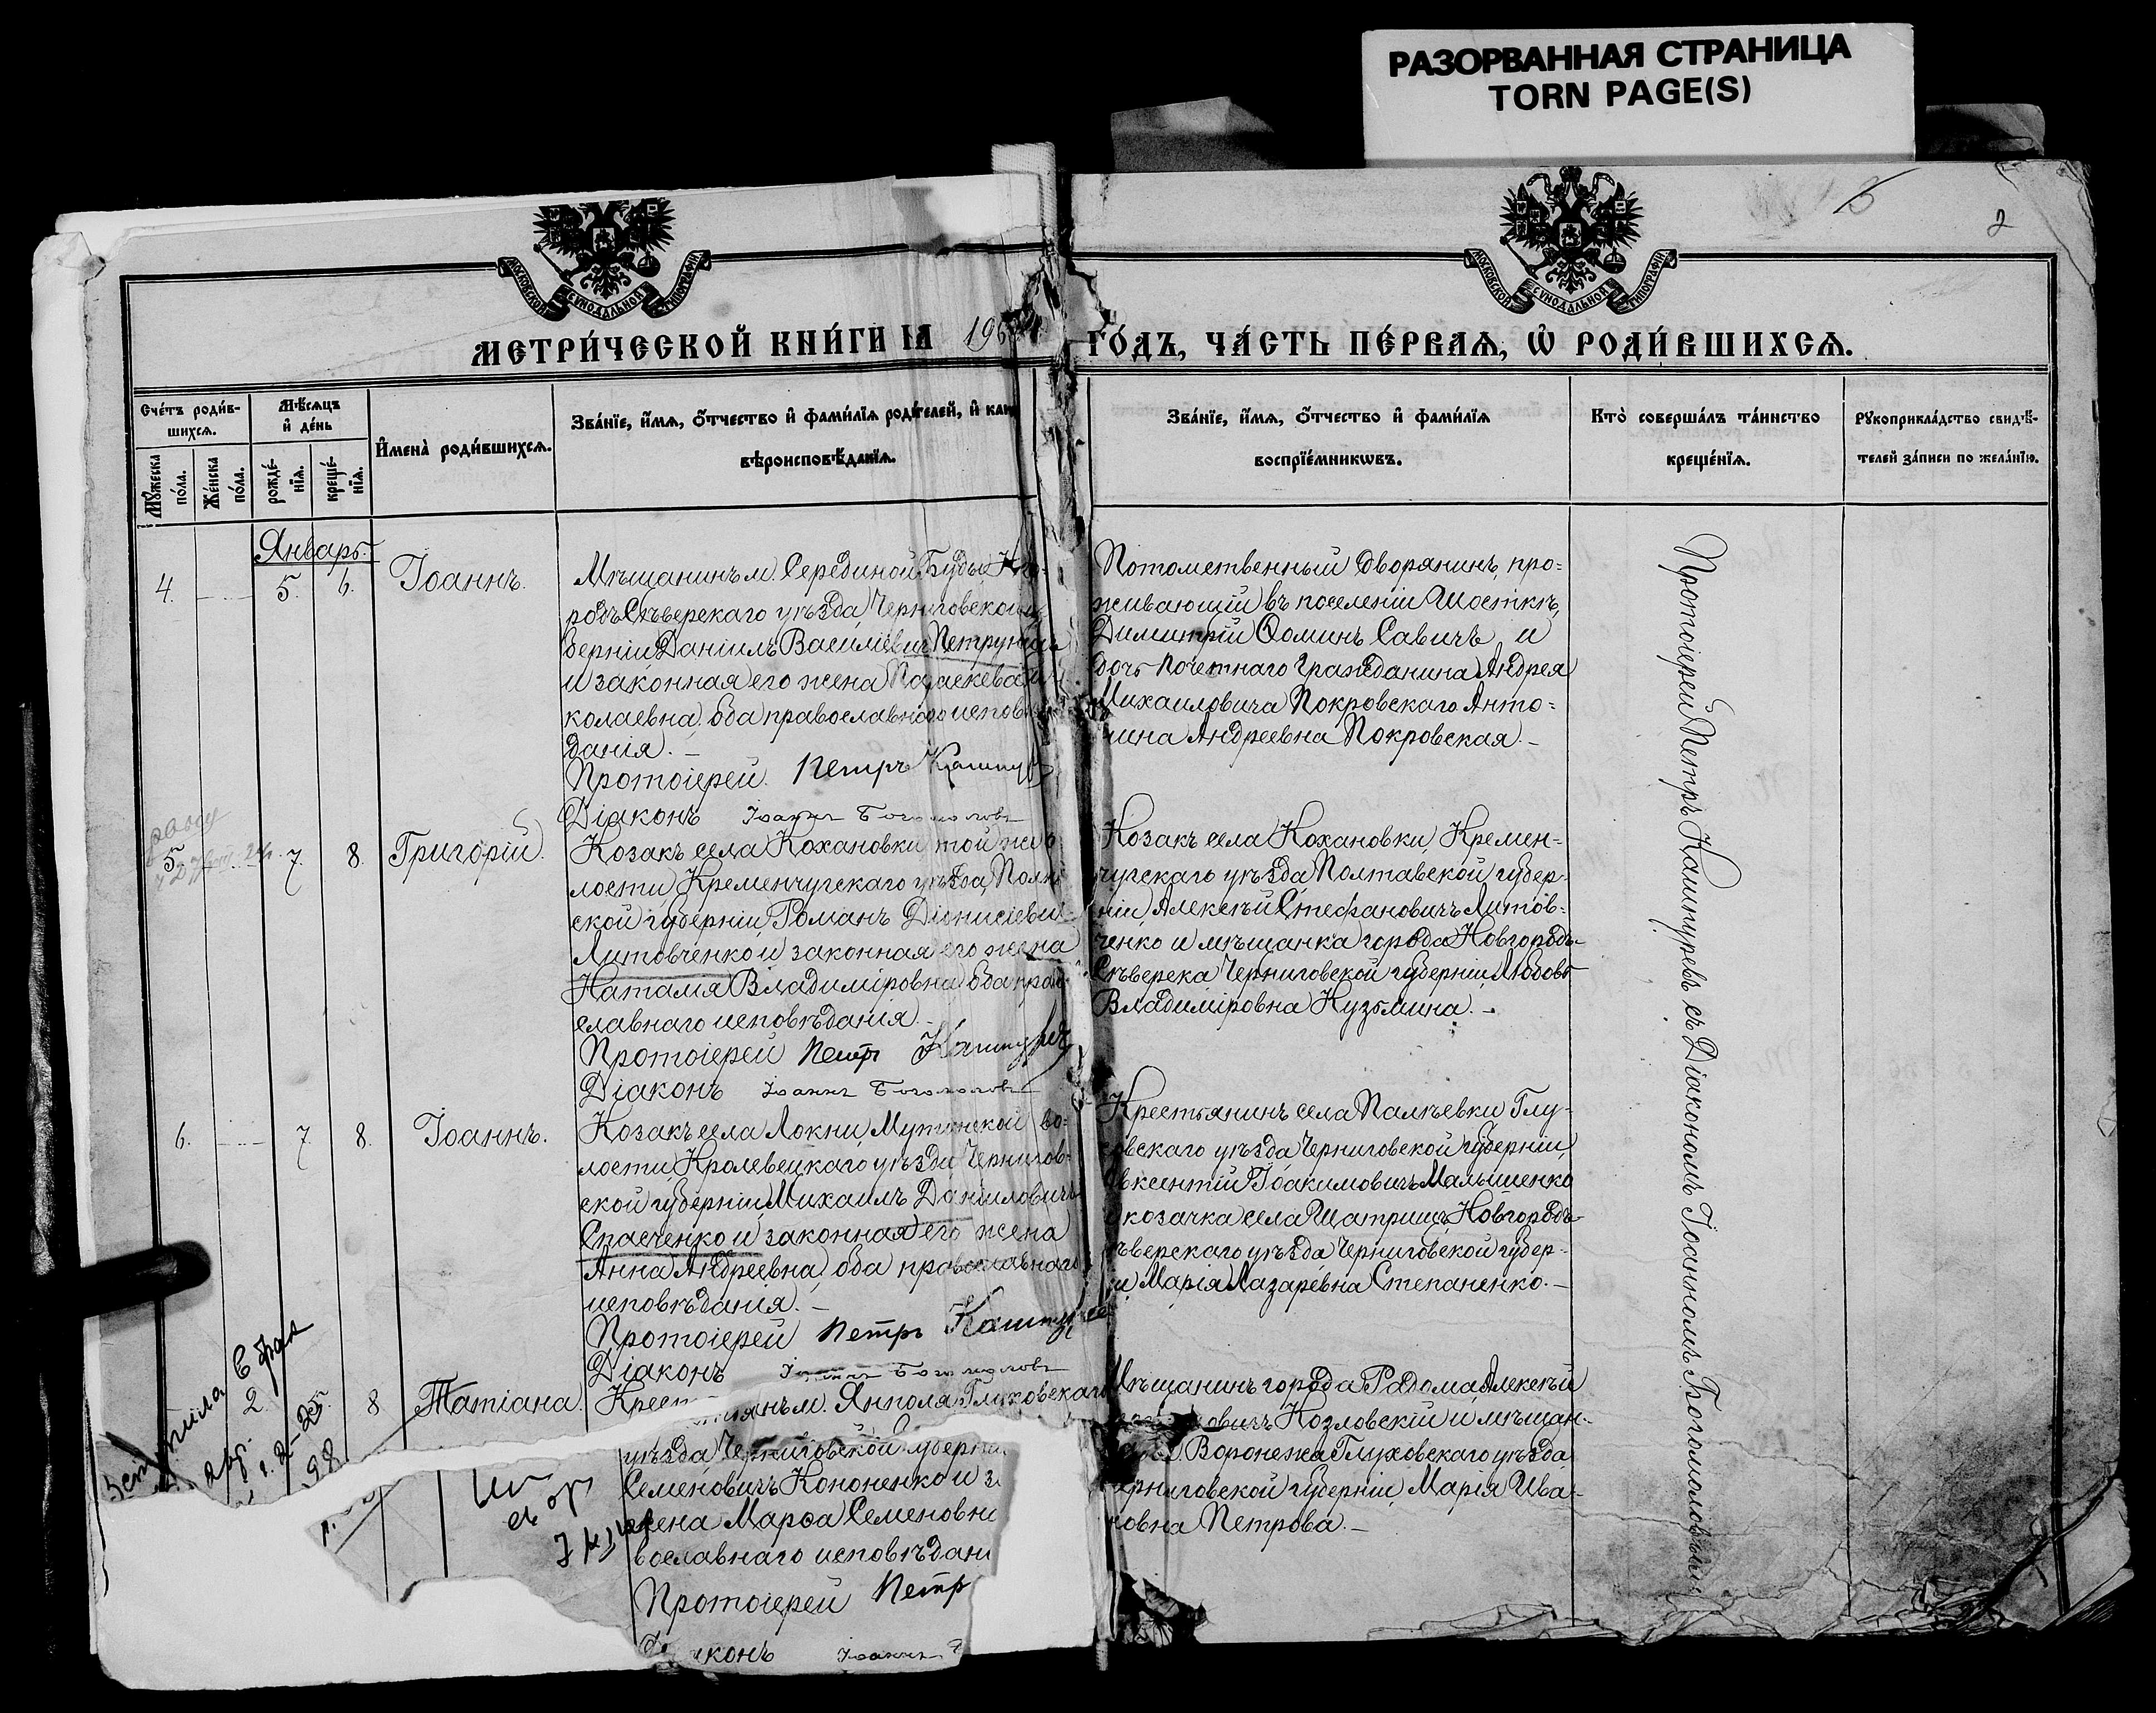 РАЗОРВАННАЯ СТРАНИЦА
TORN PAGE(S)
2
МОСКОВСКОЙ СѴНОДАЛЬНОЙ ТИПОГРАФІИ
МОСКОВСКОЙ СѴНОДАЛЬНОЙ ТИПОГРАФІИ
МЕТРИ́ЧЕСКОЙ КНИ́ГИ
ГО́ДЪ, ЧА́СТЬ ПЕ́РВАѦ, Ѡ҆ РОДИ́ВШИХСѦ.
Сче́тъ роди́в-
шихсѧ.
Мѣ́сѧцъ
и҆ де́нь
Мꙋ́жеска
по́ла.
Же́нска
по́ла.
рожде́-
нїѧ.
креще́-
нїѧ.
И҆мена̀ роди́вшихсѧ.
Зва́нїе, и҆́мѧ, ѻ҆́тчество и҆ фами́лїѧ роди́телей, и҆
вѣроисповѣ́данїѧ.
Зва́нїе, и҆́мѧ, ѻ҆́тчество и҆ фами́лїѧ
воспрїе́мникѡвъ.
Кто̀ соверша́лъ та́инство
креще́нїѧ.
Рꙋкоприкла́дство свидѣ́-
телей за́писи по жела́нїю.
Январь.
4. 5. 6. Іоаннъ.
Мѣщанинъ м. Серединой Буды
родъ Сѣверскаго уѣзда Черниговской
берніи Даніилъ Василіевичъ
и законная его жена Параскева
колаевна, оба православнаго
данія. –
Протоіерей Петръ
Діаконъ Іоаннъ Богомоловъ
Потомственный дворянинъ, про=
живающій въ поселеніи Шосткѣ,
Димитрій Ѳоминъ Савичъ и
дочь почетнаго гражданина Андрея
Михаиловича Покровскаго Анто=
нина Андреевна Покровская. –
5 7. 8. Григорій.
Козакъ села Кохановки, той же
лости, Кременчугскаго уѣзда,
ской губерніи, Романъ Діонисіевичъ
Литовченко и законная его жена
Наталія Владиміровна, оба право
славнаго исповѣданія. –
Протоіерей Петръ
Діаконъ Іоаннъ Богомоловъ
Козакъ села Кохановки, Кремен=
чугскаго уѣзда Полтавской губер-
ніи, Алексѣй Стефановичъ Литов=
ченко и мѣщанка города Новгородъ-
Сѣверска Черниговской губерніи, Любовь
Владиміровна Кузьмина. –
6. 7. 8. Іоаннъ.
Козакъ села Локни, Мутинской во=
лости, Кролевецкаго уѣзда Чернигов-
ской губерніи Михаилъ Даніиловичъ
Спасченко и законная его жена
Анна Андреевна, оба православнаго
исповѣданія. –
Протоіерей Петръ
Діаконъ Іоаннъ Богомоловъ
Крестьянинъ села Палѣевки Глу-
ховскаго уѣзда Черниговской губерніи,
Іоакимовичъ Малышенко
козачка села Шатрищъ, Новгородъ-
сѣверскаго уѣзда Черниговской губер-
Марія Лазаревна Степаненко. –
2. 8 Татіана.
м. Янполя Глуховскаго
уѣзда Черниговской губерніи
Семеновичъ Кононенко и
жена Марѳа Семеновна
вославнаго
Протоіерей Петръ
Іоаннъ
Мѣщанинъ города Радома Алексѣй
Козловскій и мѣщан-
Воронежа Глуховскаго уѣзда
Черниговской губерніи, Марія Ива-
новна Петрова. –
Протоіерей Петръ Кашпуревъ съ Діакономъ Іоанномъ Богомоловымъ